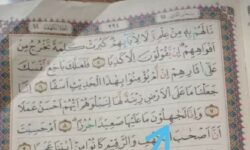 ٢٩٤
مَّا لَهُم بِهِۦ مِنْ عِلْمٍ وَلَا لِأٓبَآئِهِمْ كَبُرَتْ كَلِمَةً تَخْرُجُ مِنْ
أَفْوَٰهِهِمْ إِن يَقُولُونَ إِلَّا كَذِبًا ۝٥ فَلَعَلَّكَ بَٰخِعٌ نَّفْسَكَ
عَلَىٰٓ ءَاثَٰرِهِمْ إِن لَّمْ يُؤْمِنُوا۟ بِهَٰذَا ٱلْحَدِيثِ أَسَفًا ۝٦ إِنَّا
جَعَلْنَا مَا عَلَى ٱلْأَرْضِ زِينَةً لَّهَا لِنَبْلُوَهُمْ أَيُّهُمْ أَحْسَنُ عَمَلًا
۝٧ وَإِنَّا لَجَٰعِلُونَ مَا عَلَيْهَا صَعِيدًا جُرُزًا ۝٨ أَمْ حَسِبْتَ
أَنَّ أَصْحَٰبَ ٱلْكَهْفِ وَٱلرَّقِيمِ كَانُوا۟ مِنْ